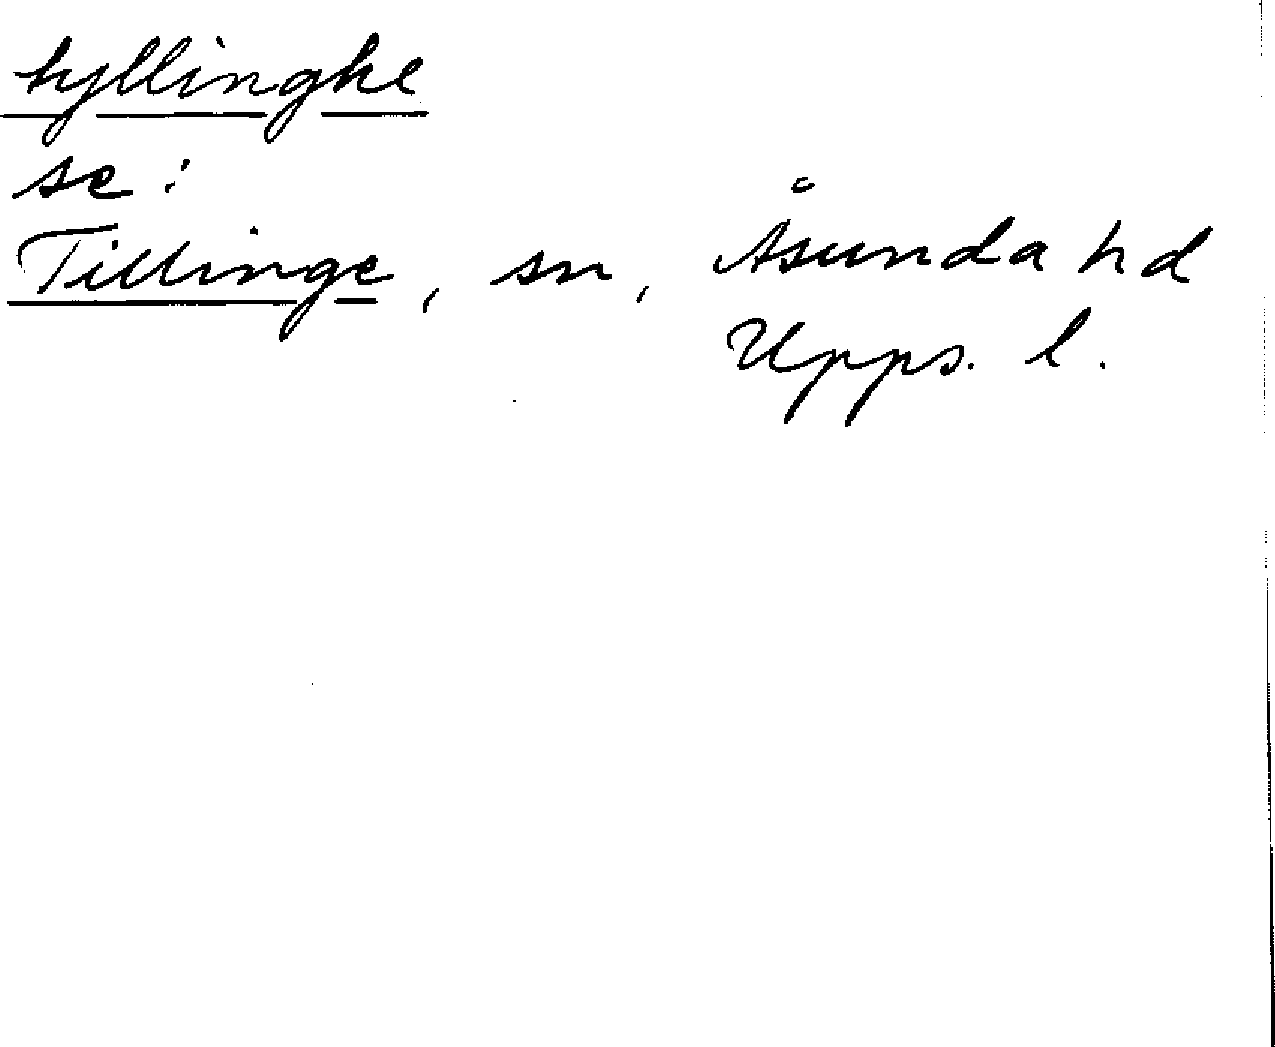 tyllinghe
se:
Tillinge, sn, Åsunda hd
Upps. l.